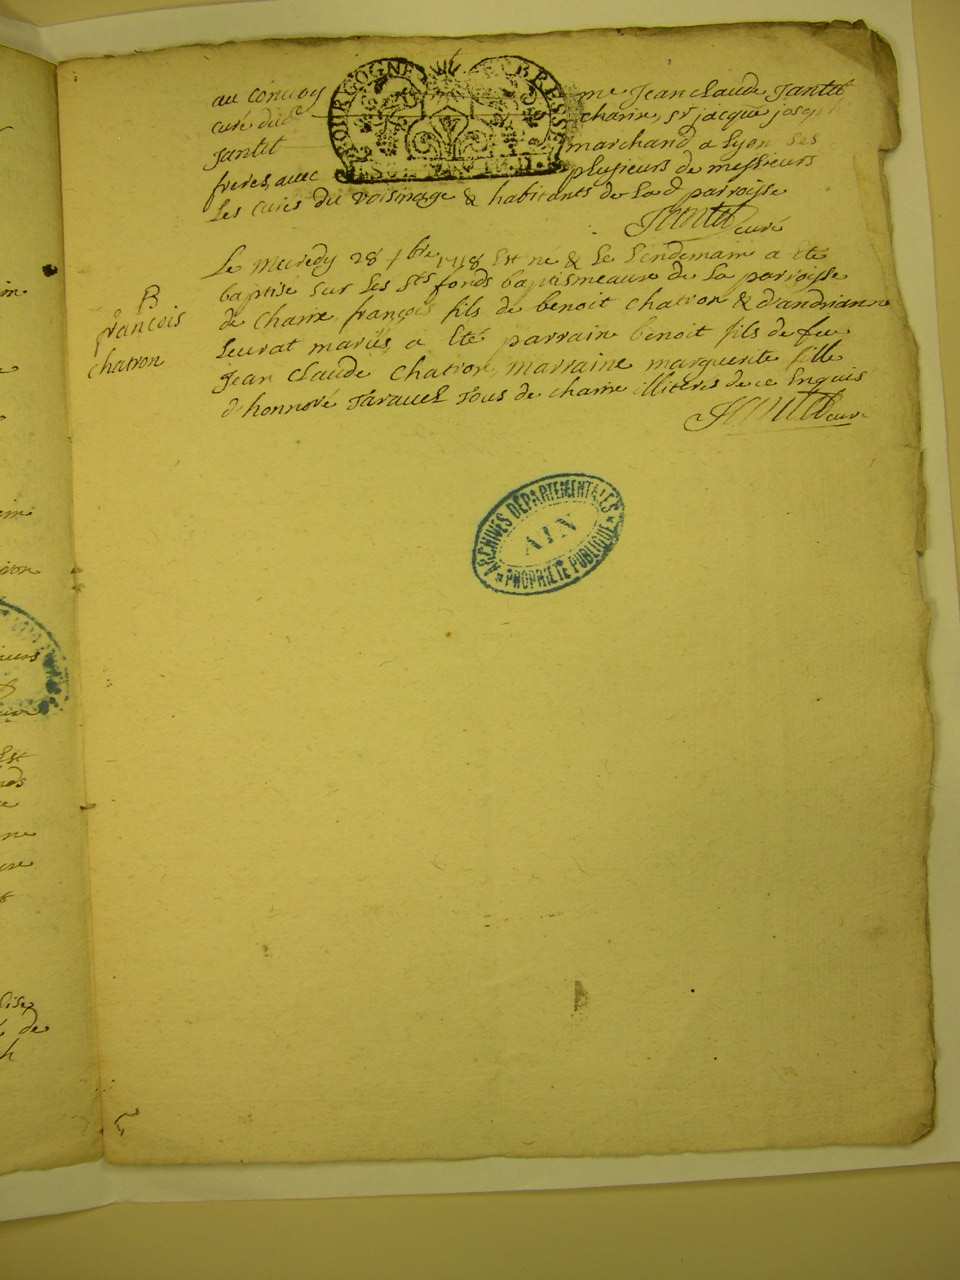 au convoy me Jean Claude Jantet
BOURGOGNE BRESSE
curé dud charne, sr jacque joseph
Jantet marchand a Lyon ses
freres, avec plusieurs de messieurs
Les curés du voisinage & habitants de Lad parroisse
Jantet curé
Le mecredy 28 est né & Le Lendemain a été
baptise sur Les Sts fonds baptismeaux de La parroisse
B
françois
chatron
de Charne françois fils de benoit Chatron & d'andrianne
Leurat mariés a été parrain benoit fils de feu
Jean Claude Chatron, marraine marguerite fille
d'honnoré Taravel Tous de charne illiteres de ce Enquis
Jantet curé
ARCHIVES DÉPARTEMENTALES
AIN
PROPRIÉTÉ PUBLIQUE